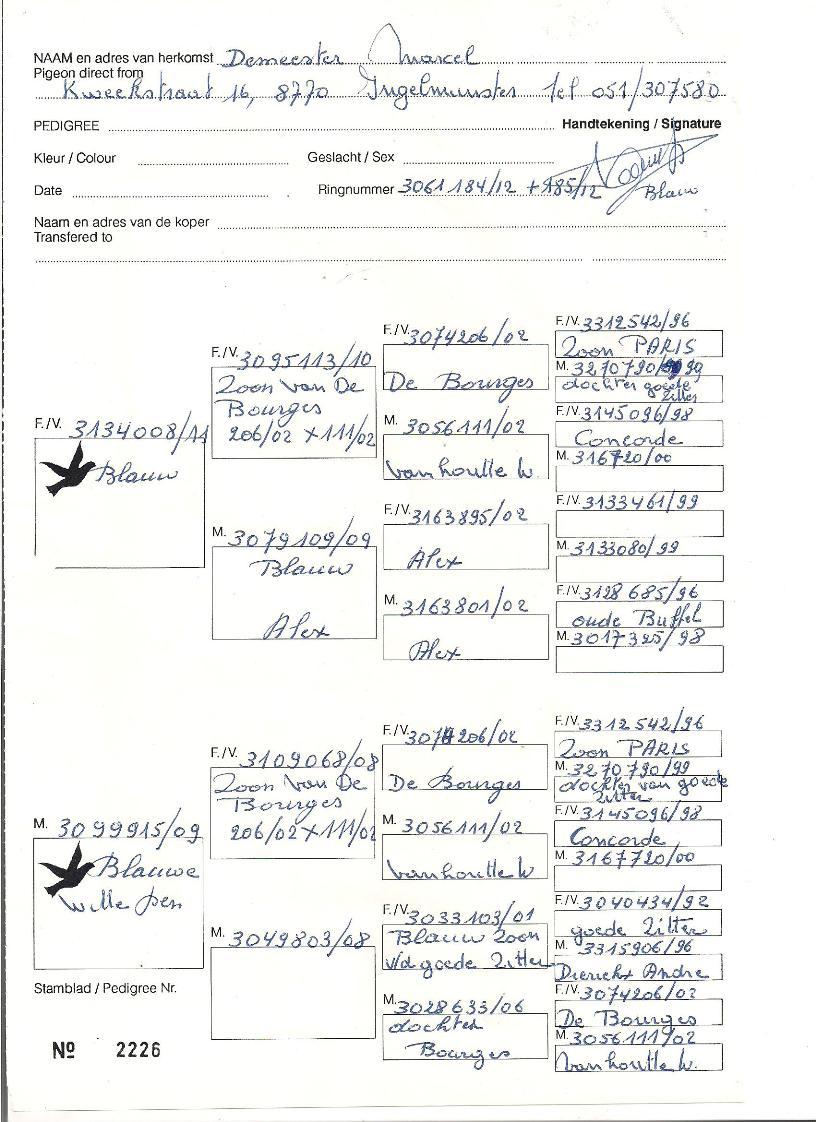 NAAM en adres van herkomst Demeester Marcel
Pigeon direct from
Kweekstraat 16, 8770 Ingelmunster Tel 051/307580
PEDIGREE Handtekening / Signature
Kleur / Colour Geslacht / Sex
Date Ringnummer 3061184/12 + 185/12 Blauw
Naam en adres van de koper
Transfered to
F./V. 3134008/11
Blauw
F./V. 3095113/10
Zoon van De
Bourges
206/02 x 111/02
M. 3079109/09
Blauw
Alex
F./V. 3074206/02
De Bourges
M. 3056111/02
Vanhoutte W.
F./V. 3163895/02
Alex
M. 3163801/02
Alex
F./V. 3312542/96
Zoon PARIS
M. 3270790/99
dochter goede
Zitter
F./V. 3145096/98
Concorde
M. 316720/00
F./V. 3133461/99
M. 3133080/99
F./V. 3128685/96
oude Buffel
M. 3017325/98
M. 3099915/09
Blauwe
witte pen
F./V. 3109068/08
Zoon van De
Bourges
206/02 x 111/02
M. 3049803/08
F./V. 3074206/02
De Bourges
M. 3056111/02
Vanhoutte W
F./V. 3033103/01
Blauw Zoon
v/d goede Zitter
M. 3028633/06
dochter
Bourges
F./V. 3312542/96
Zoon PARIS
M. 3270790/99
dochter van goede
Zitter
F./V. 3145096/98
Concorde
M. 3167720/00
F./V. 3040434/92
goede Zitter
M. 3315906/96
Dierickx Andre
F./V. 3074206/02
De Bourges
M. 3056111/02
Vanhoutte W.
Stamblad / Pedigree Nr.
Nº 2226